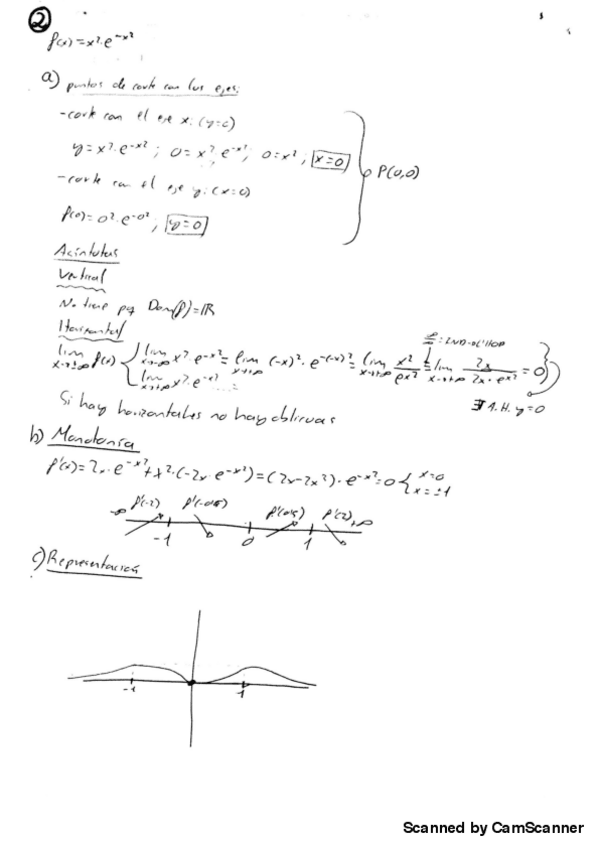 2
f(x)=x²·e^-x²
a) puntos de corte con los ejes:
-corte con el eje x: (y=0)
y=x²·e^-x² ; 0=x²·e^-x² ; 0=x² ; x=0
P(0,0)
-corte con el eje y: (x=0)
f(0)=0²·e^-0² ; y=0
Acíntotas
Vertical
No tiene pq Dom(f)=ℝ
Horizontal
∞/∞: IND→L'HOP
lim x→±∞ f(x) { lim x→-∞ x²·e^-x² = lim x→+∞ (-x)²·e^-(-x)² = lim x→+∞ x²/e^x² = lim x→+∞ 2x/2x·e^x² = 0
lim x→+∞ x²·e^-x² =
∃ A.H. y=0
Si hay horizontales no hay oblicuas
b) Monotonía
f'(x)=2x·e^-x²+x²·(-2x·e^-x²)=(2x-2x³)·e^-x²=0 { x=0 x=±1
-∞ f'(-2) f'(-0'5) f'(0'5) f'(2) +∞
-1 0 1
c) Representación
-1 1
Scanned by CamScanner